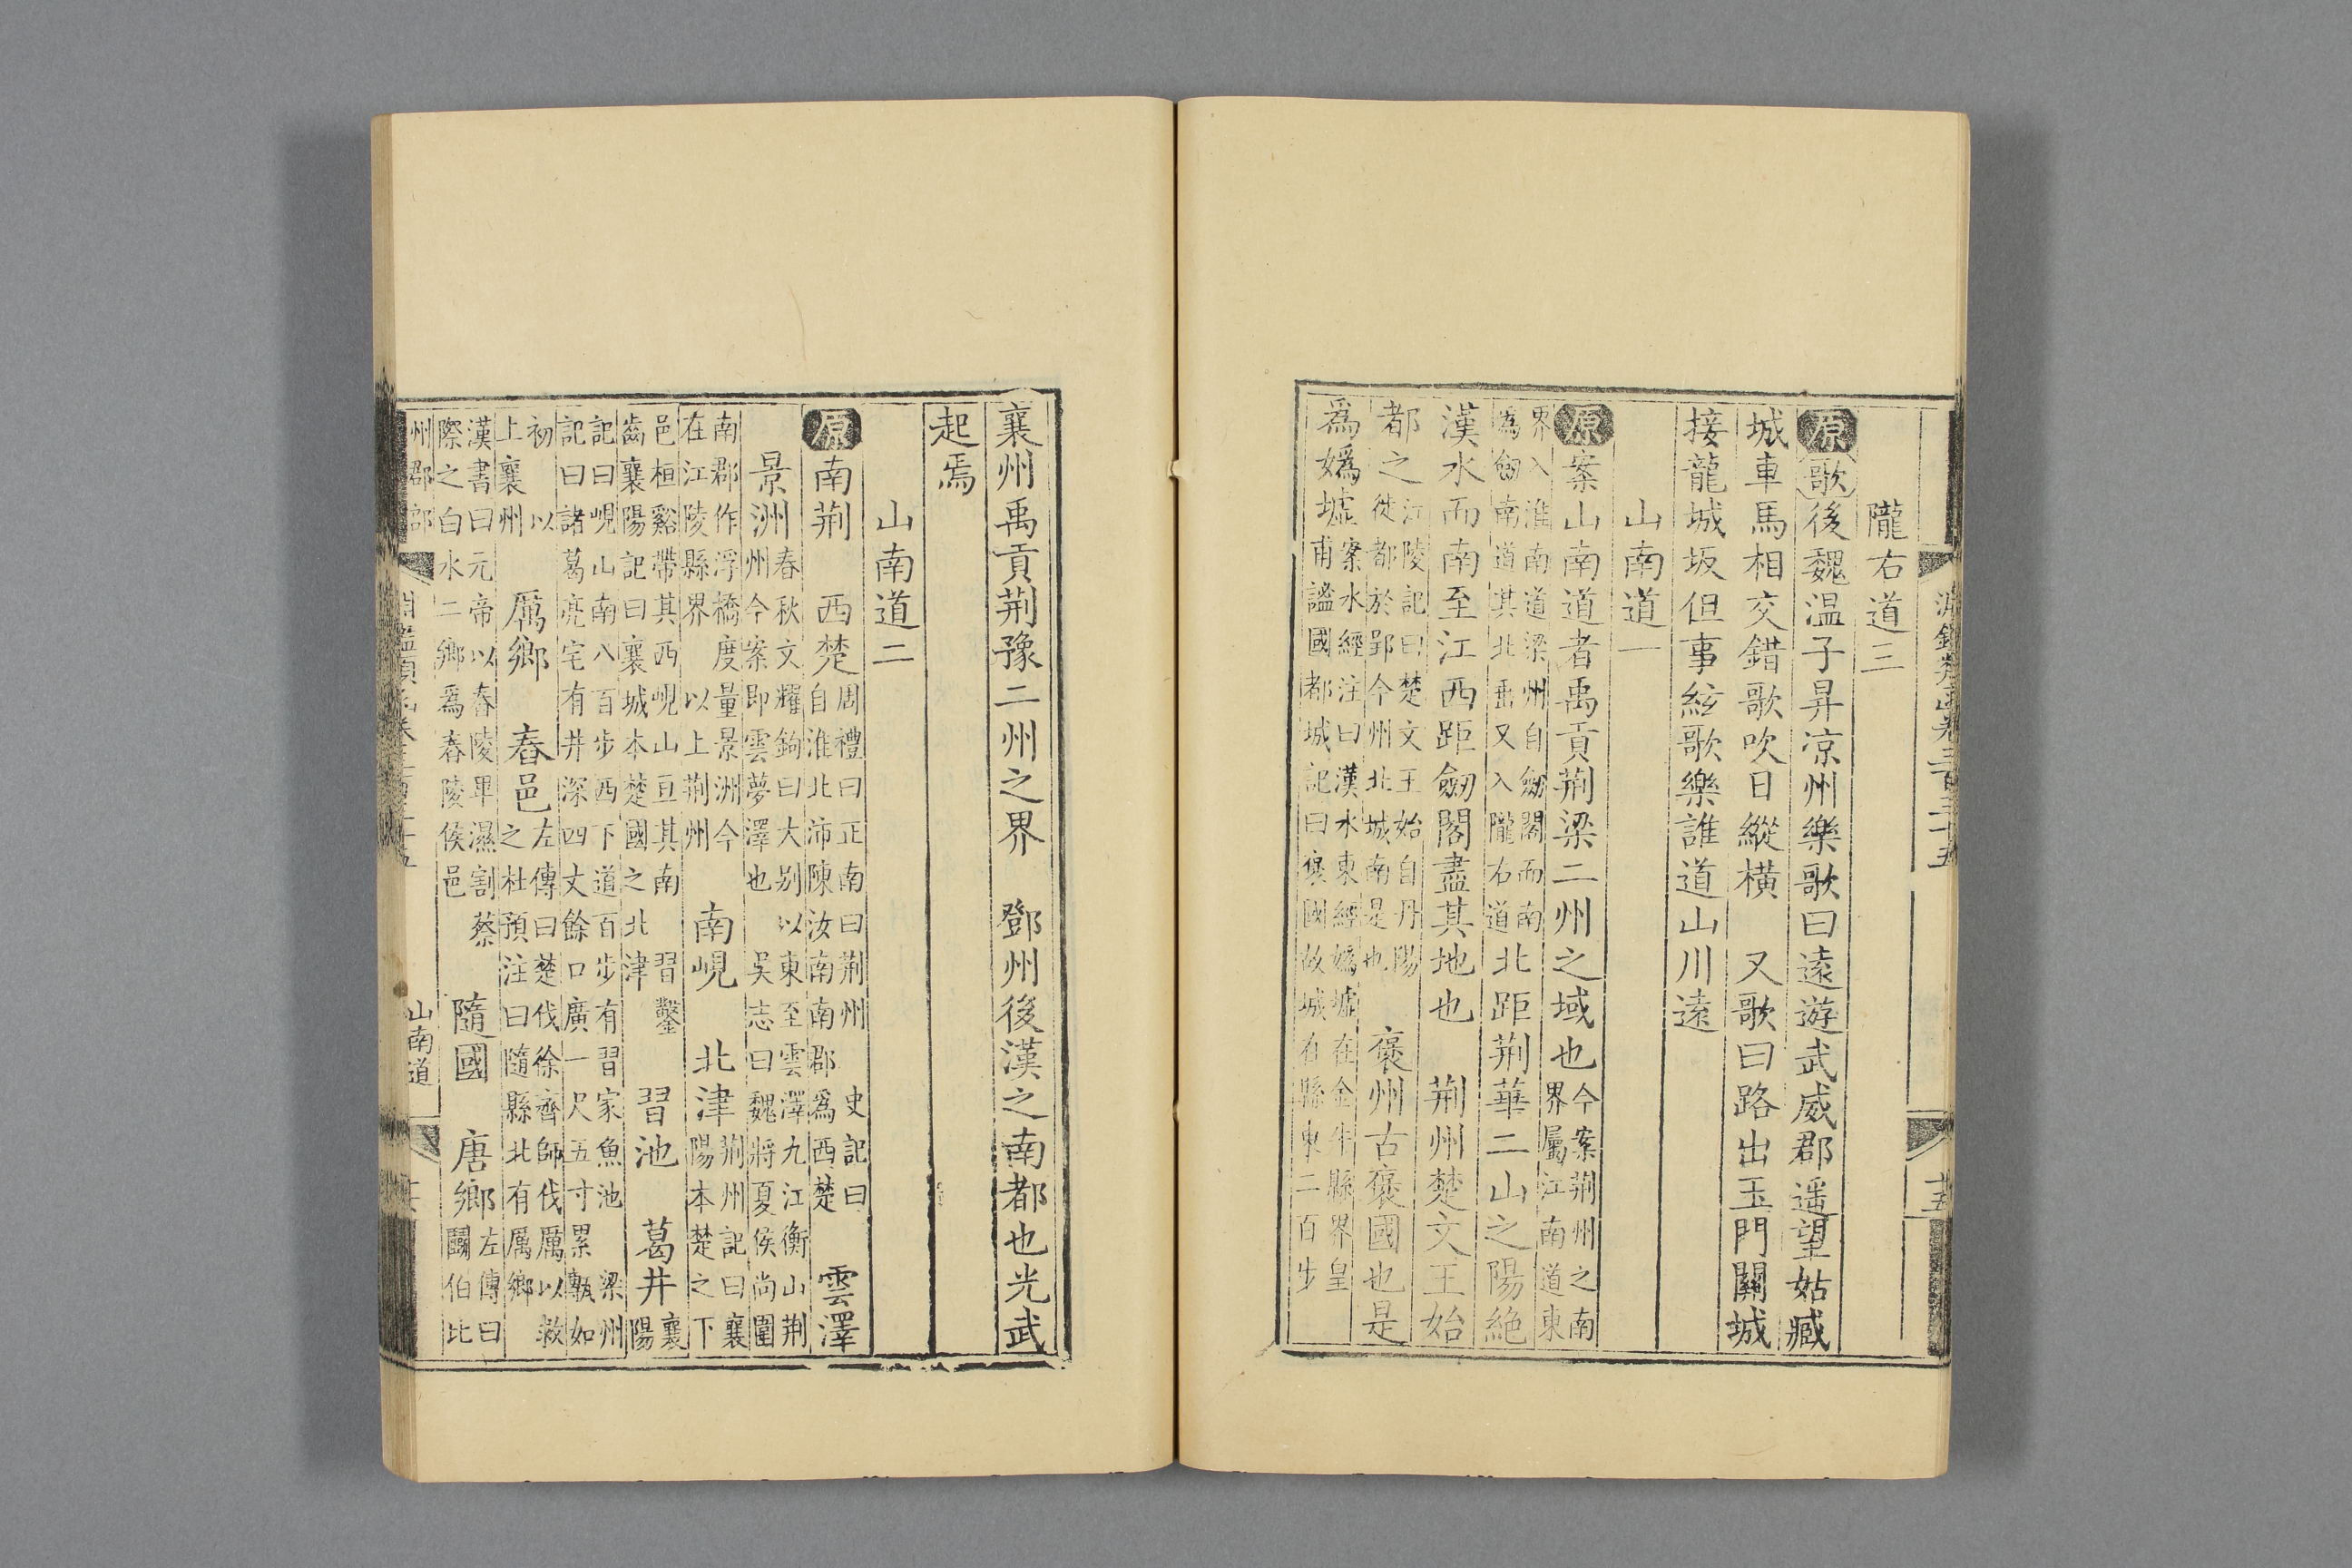 隴右道三
原歌後魏温子昇凉州樂歌曰遠遊武威郡遥望姑臧
城車馬相交錯歌吹日縱横　又歌曰路出玉門關城
接龍城坂但事絃歌樂誰道山川遠
山南道一
原案山南道者禹貢荆梁二州之域也今案荆州之南界屬江南道東
界入淮南道梁州自劔閣而南為劔南道其北垂又入隴右道北距荆華二山之陽絶
漢水而南至江西距劔閣盡其地也　荆州楚文王始
都之江陵記曰楚文王始自丹陽徙都於郢今州北城南是也　褒州古褒國也是
爲嬀墟案水經注曰漢水東經嬀墟在金牛縣界皇甫謐國都城記曰褒國故城在縣東二百步
十五
襄州禹貢荆豫二州之界　鄧州後漢之南都也光武
起焉
山南道二
原南荆　西楚周禮曰正南曰荆州　史記曰自淮北沛陳汝南南郡爲西楚　雲澤
景洲春秋文耀鉤曰大别以東至雲澤九江衡山荆州今案即雲夢澤也　吳志曰魏將夏侯尚圍
南郡作浮橋度量景洲今在江陵縣界　以上荆州　南峴　北津荆州記曰襄陽本楚之下
邑桓谿帶其西峴山亘其南　習鑿齒襄陽記曰襄城本楚國之北津　習池　葛井襄陽
記曰峴山南八百步西下道百步有習家魚池　梁州記曰諸葛亮宅有井深四丈餘口廣一尺五寸累甎如
初　以上襄州　厲鄉　舂邑左傳曰楚伐徐齊師伐厲以救之杜預注曰隨縣北有厲鄉
漢書曰元帝以舂陵卑濕割蔡際之白水二鄉爲舂陵侯邑　隨國　唐鄉左傳曰鬬伯比
州郡
山南道